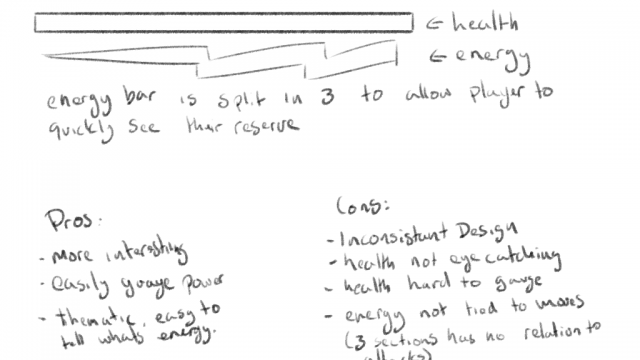 ← health
← energy
energy bar is split in 3 to allow player to
quickly see their reserve
Pros:
- more interesting
- easily guage power
- thematic, easy to
tell whats energy.
Cons:
- Inconsistant Design
- health not eye catching
- health hard to gauge
- energy not tied to moves
(3 sections has no relation to
attacks)